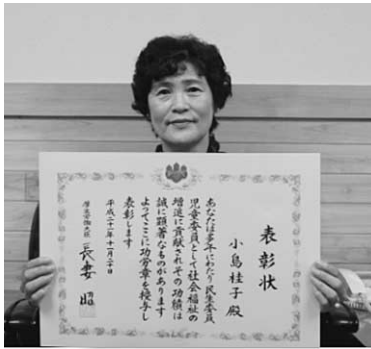 表彰状
小島桂子殿
あなたは多年にわたり民生委員
児童委員として社会福祉の
増進に貢献されその功績は
誠に顕著なものがあります
よってここに功労章を授与し
表彰します
平成二十一年十一月二十日
厚生労働大臣 長妻昭